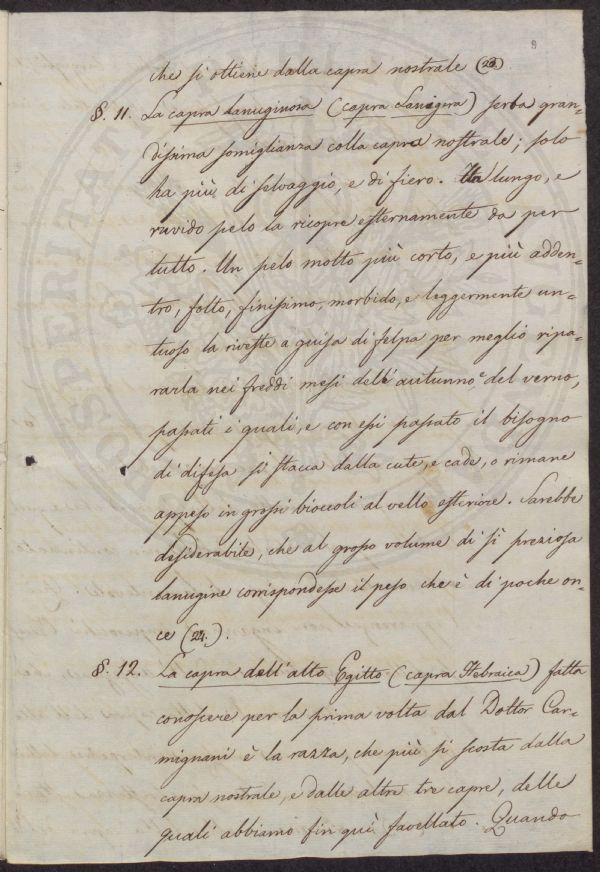 9
che si ottiene dalla capra nostrale (23)
§. 11. La capra lanuginosa (capra Lanigera) serba gran-
dissima somiglianza colla capra nostrale; solo
ha più di selvaggio, e di fiero. Un lungo, e
ruvido pelo la ricopre esternamente da per
tutto. Un pelo molto più corto, e più adden-
tro, folto, finissimo, morbido, e leggermente un-
tuoso la riveste a guisa di felpa per meglio ripa-
rarla nei freddi mesi dell'autunno e del verno,
passati i quali, e con essi passato il bisogno
di difesa si stacca dalla cute, e cade, o rimane
appeso in grossi bioccoli al vello esteriore. Sarebbe
desiderabile, che al grosso volume di sì preziosa
lanugine corrispondesse il peso che è di poche on-
ce (24.).
§. 12. La capra dell'alto Egitto (capra Hebraica) fatta
conoscere per la prima volta dal Dottor Car-
mignani è la razza, che più si scosta dalla
capra nostrale, e dalle altre tre capre, delle
quali abbiamo fin quì favellato. Quando